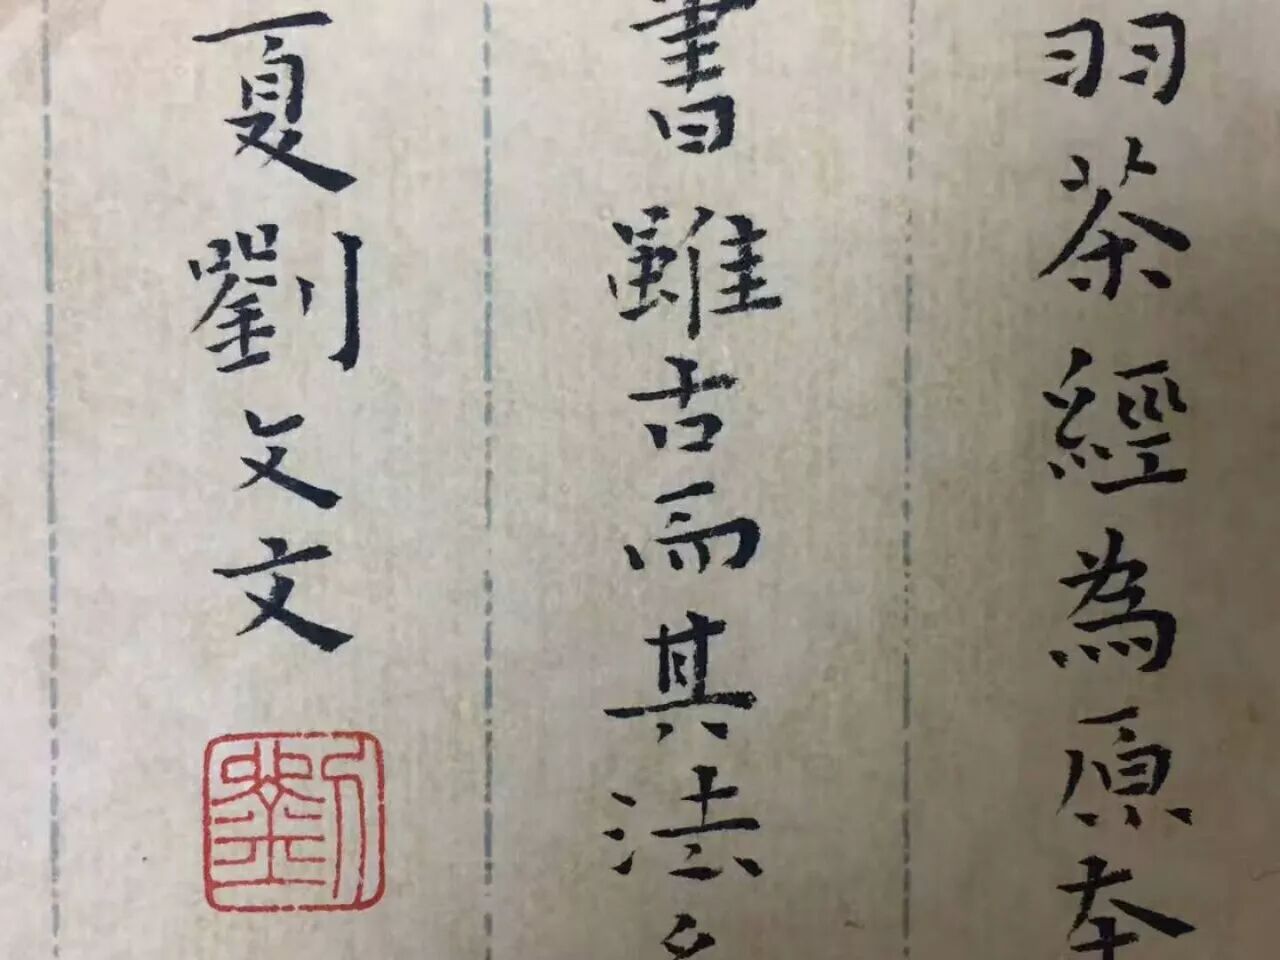 羽茶經為原本
書雖古而其法
夏劉文文
劉